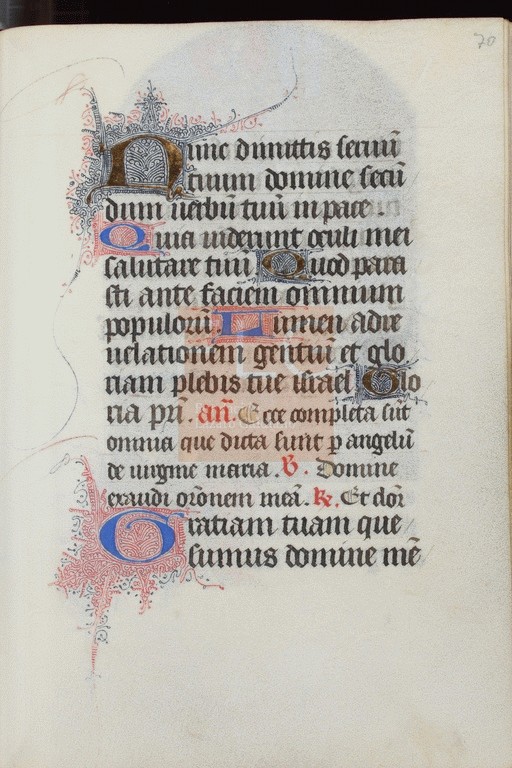 70
Nunc dimittis seruū
tuum domine secū
dum uerbū tuū in pace.
Quia uiderunt oculi mei
salutare tuū Quod para
sti ante faciem omnium
populorū. Lumen ad re
uelationem gentiū et glo
riam plebis tue israel Glo
ria pr̄i. añ. Ecce completa sūt
omnia que dicta sunt ꝑ angelū
de uirgine maria. V̄. Domine
exaudi or̄onem meā. R̄. Et clōr
Gratiam tuam que
sumus domine mē